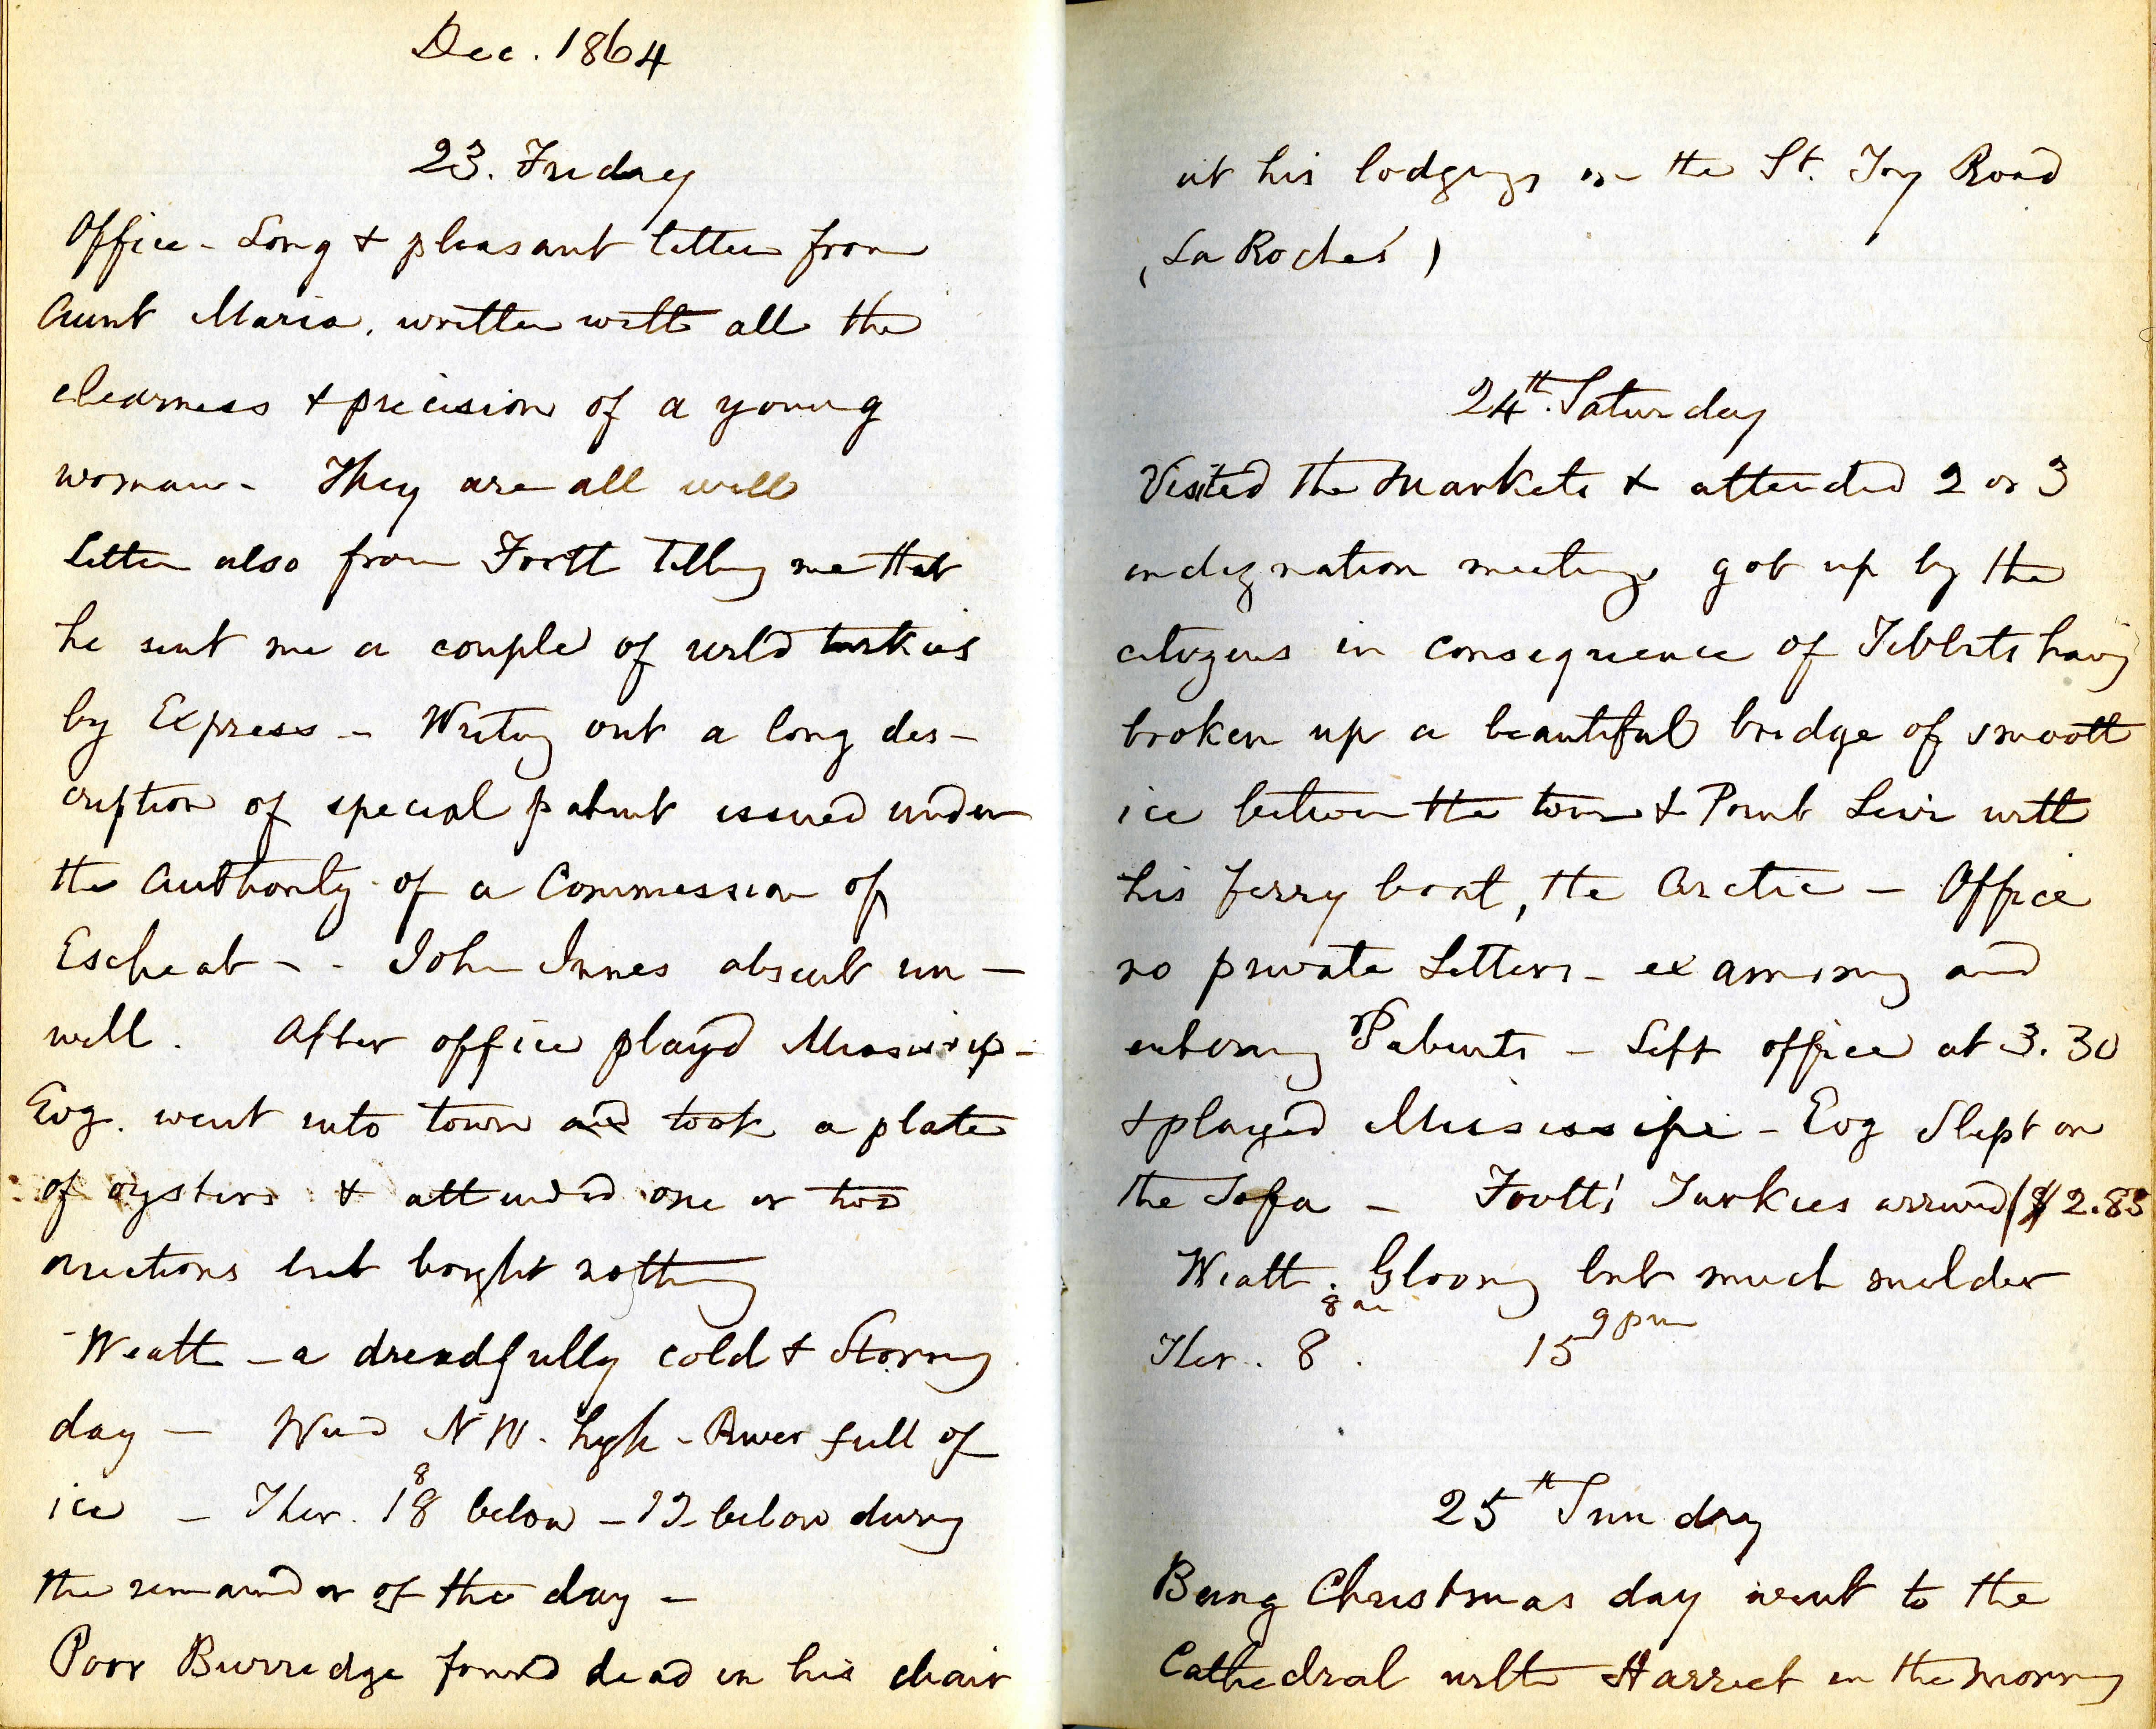 Dec. 1864
23. Friday
Office - Long & pleasant letter from
Aunt Maria, written with all the
clearness & precision of a young
woman - They are all well
Letter also from Fortt telling me that
he sent me a couple of wild turkies
by Express - Writing out a long des-
cription of special patent issued under
the Authority of a Commission of
Escheat - - John Innes absent un-
well. After office playd Missisip-
Evg. went into town and took a plate
of oysters & attended one or two
auctions but bought nothing
Weath - a dreadfully cold & Stormy
day - Wind N W. high - River full of
ice - Ther. 18 below - 12 below during
8
the remainder of the day -
Poor Burredge found dead in his chair
at his lodgings on the St. Foy Road
(La Roche's)
24th. Saturday
Visited the markets & attended 2 or 3
indignation meetings got up by the
citizens in consequence of Tibbits having
broken up a beautiful bridge of smooth
ice between the town & Point Levi with
his ferry boat, the Arctic - Office
no private Letters - examining and
entering Patents - Left office at 3.30
& played Missisipi - Evg Slept on
the Sofa - Fortt's Turkies arrived ($2.83
Weath. Gloomy but much milder
8 am 9 pm
Ther. 8. 15
25th Sunday
Being Christmas day went to the
Cathedral with Harriet in the morning